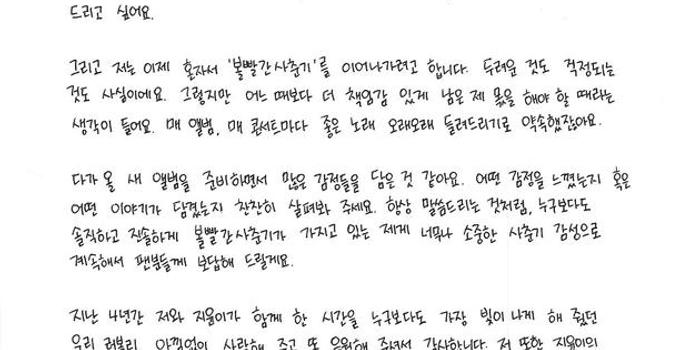 드리고 싶어요.
그리고 저는 이제 혼자서 '볼빨간사춘기'를 이어나가려고 합니다. 두려운 것도 걱정되는
것도 사실이에요. 그렇지만 어느 때보다 더 책임감 있게 남은 제 몫을 해야 할 때라는
생각이 들어요. 매 앨범, 매 콘서트마다 좋은 노래 오래오래 들려드리기로 약속했잖아요.
다가올 새 앨범을 준비하면서 많은 감정들을 담은 것 같아요. 어떤 감정을 느꼈는지 혹은
어떤 이야기가 담겼는지 찬찬히 살펴봐 주세요. 항상 말씀드리는 것처럼, 누구보다도
솔직하고 진솔하게 볼빨간사춘기가 가지고 있는 제게 너무나 소중한 사춘기 감성으로
계속해서 팬분들께 보답해 드릴게요.
지난 4년간 저와 지윤이가 함께 한 시간을 누구보다도 가장 빛이 나게 해 줬던
우리 러볼리, 아낌없이 사랑해 주고 또 응원해 주셔서 감사합니다. 저 또한 지윤이의